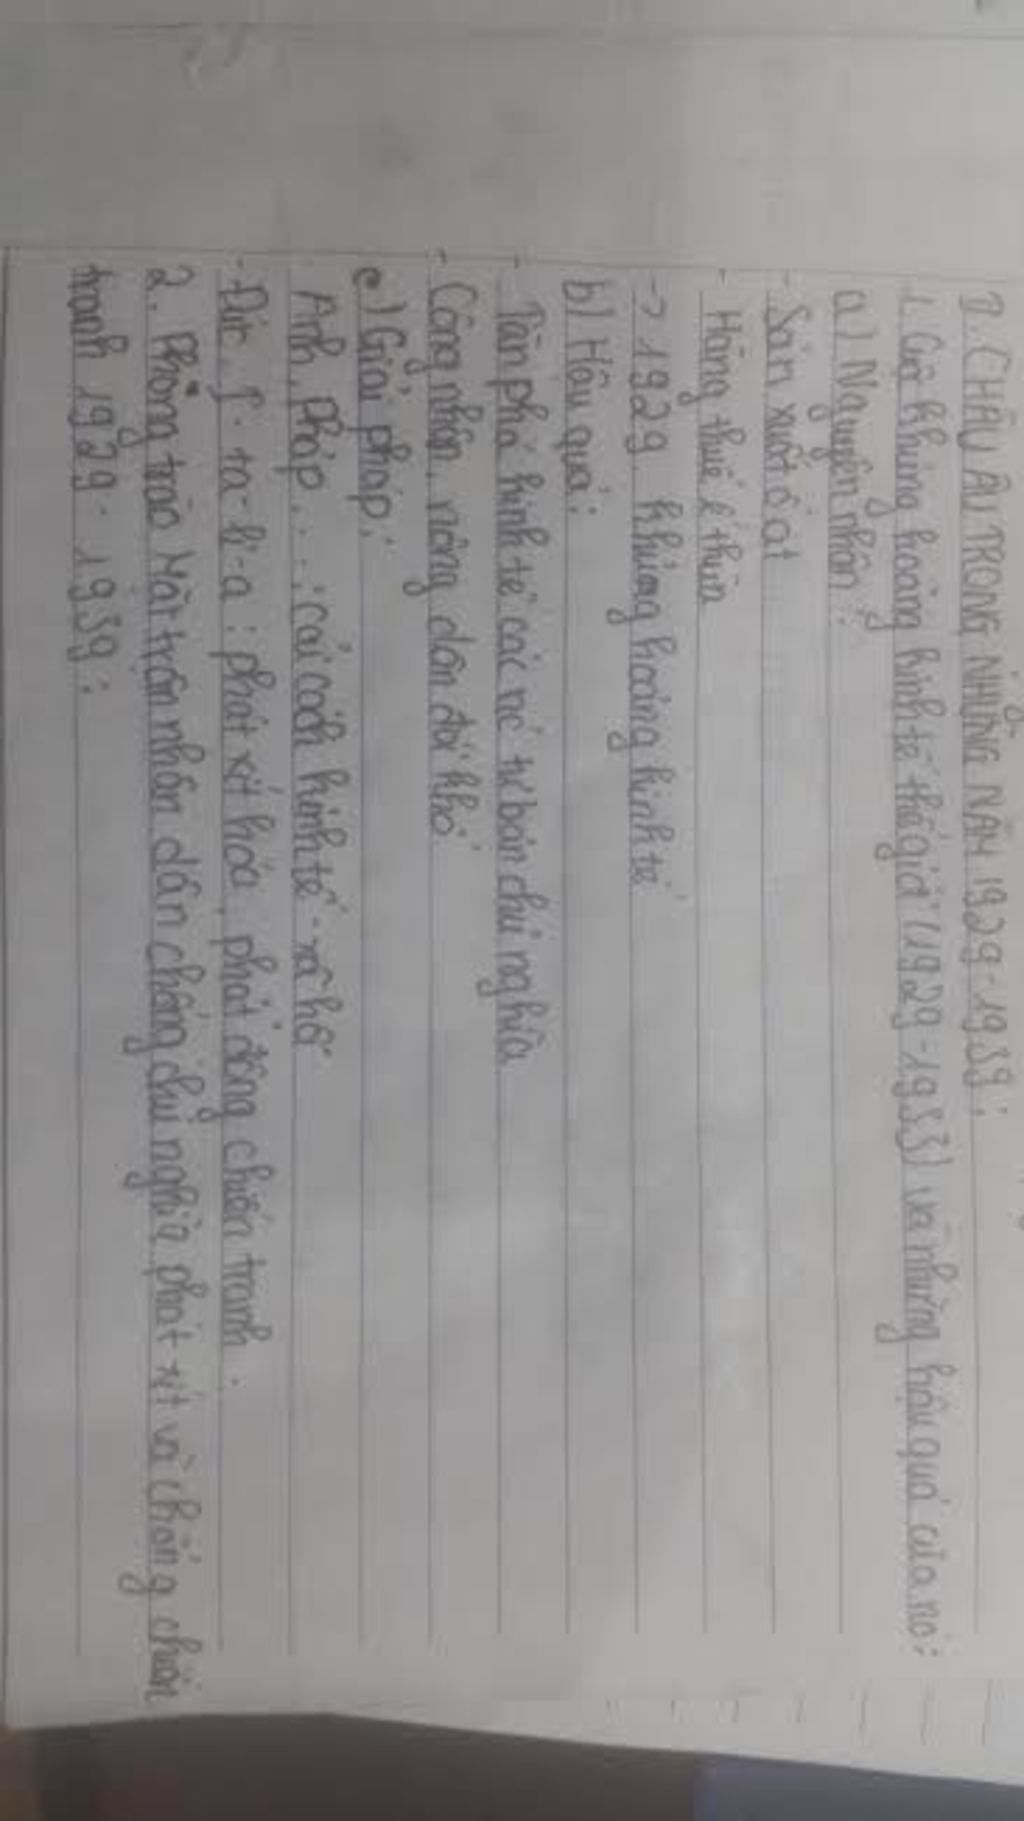 II. CHÂU ÂU TRONG NHỮNG NĂM 1929-1939:
1. Cuộc khủng hoảng kinh tế thế giới (1929-1933) và những hậu quả của nó:
a) Nguyên nhân:
- Sản xuất ồ ạt
- Hàng thuế ế thừa
-> 1929 khủng hoảng kinh tế
b) Hậu quả:
- Tàn phá kinh tế các nc tư bản chủ nghĩa
- Công nhân, nông dân đói khổ
c) Giải pháp:
Anh, Pháp...: cải cách kinh tế - xã hội
- Đức, I-ta-li-a: phát xít hóa, phát động chiến tranh.
2. Phong trào Mặt trận nhân dân chống chủ nghĩa phát xít và chống chiến
tranh 1929-1939: